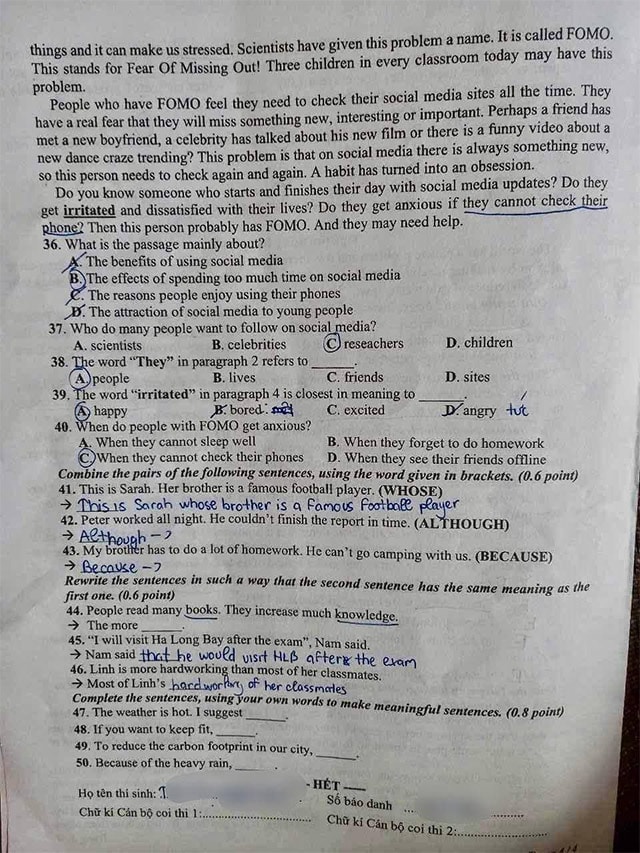 things and it can make us stressed. Scientists have given this problem a name. It is called FOMO.
This stands for Fear Of Missing Out! Three children in every classroom today may have this
problem.
People who have FOMO feel they need to check their social media sites all the time. They
have a real fear that they will miss something new, interesting or important. Perhaps a friend has
met a new boyfriend, a celebrity has talked about his new film or there is a funny video about a
new dance craze trending? This problem is that on social media there is always something new,
so this person needs to check again and again. A habit has turned into an obsession.
Do you know someone who starts and finishes their day with social media updates? Do they
get irritated and dissatisfied with their lives? Do they get anxious if they cannot check their
phone? Then this person probably has FOMO. And they may need help.
36. What is the passage mainly about?
A. The benefits of using social media
B. The effects of spending too much time on social media
C. The reasons people enjoy using their phones
D. The attraction of social media to young people
37. Who do many people want to follow on social media?
A. scientists B. celebrities C reseachers D. children
38. The word “They” in paragraph 2 refers to ______.
A people B. lives C. friends D. sites
39. The word “irritated” in paragraph 4 is closest in meaning to ______.
A happy B. bored C. excited D. angry tut
40. When do people with FOMO get anxious?
A. When they cannot sleep well B. When they forget to do homework
C. When they cannot check their phones D. When they see their friends offline
Combine the pairs of the following sentences, using the word given in brackets. (0.6 point)
41. This is Sarah. Her brother is a famous football player. (WHOSE)
→ This is Sarah whose brother is a famous football player
42. Peter worked all night. He couldn’t finish the report in time. (ALTHOUGH)
→ Although →
43. My brother has to do a lot of homework. He can’t go camping with us. (BECAUSE)
→ Because →
Rewrite the sentences in such a way that the second sentence has the same meaning as the
first one. (0.6 point)
44. People read many books. They increase much knowledge.
→ The more ______.
45. “I will visit Ha Long Bay after the exam”, Nam said.
→ Nam said that he would visit HLB after the exam
46. Linh is more hardworking than most of her classmates.
→ Most of Linh’s hardworking of her classmates
Complete the sentences, using your own words to make meaningful sentences. (0.8 point)
47. The weather is hot. I suggest ______.
48. If you want to keep fit, ______.
49. To reduce the carbon footprint in our city, ______.
50. Because of the heavy rain, ______.
- HẾT
Họ tên thí sinh: Số báo danh
Chữ kí Cán bộ coi thi 1:................ Chữ kí Cán bộ coi thi 2:................